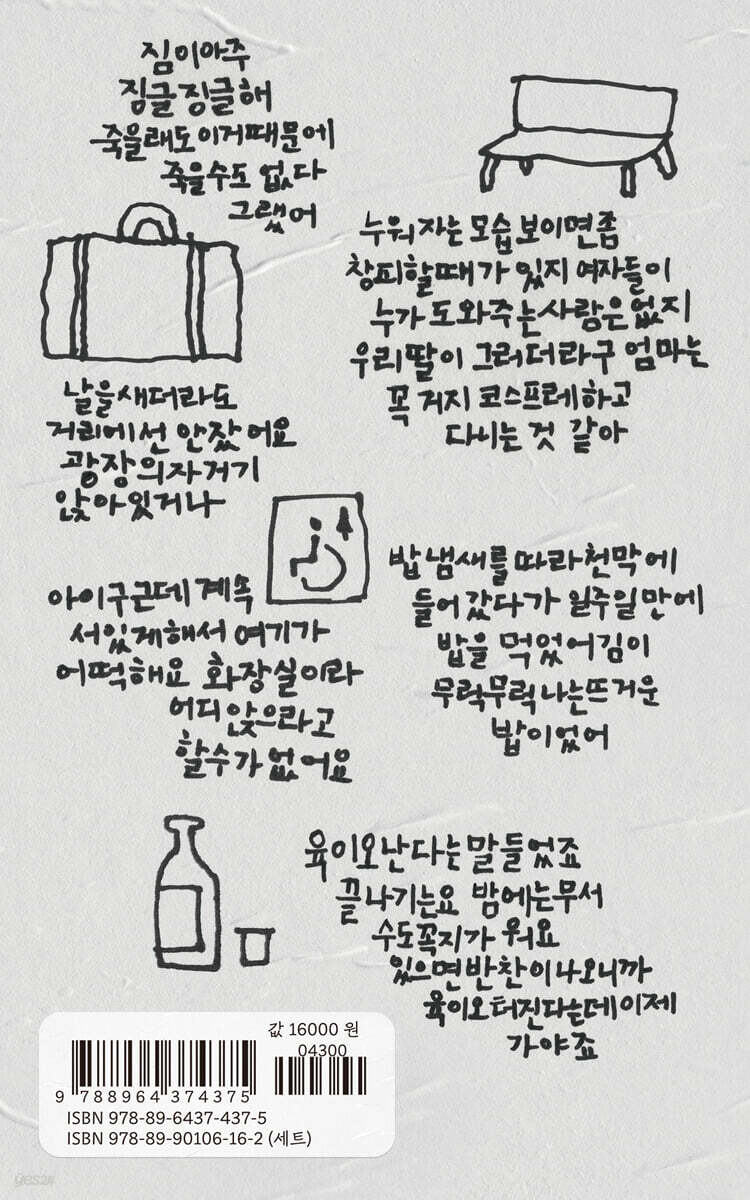 짐이아주
징글징글해
죽을래도이거때문에
죽을수도 없다
그랬어
누워자는 모습보이면좀
창피할때가 있지 여자들이
누가 도와주는사람은없지
우리딸이 그러더라구 엄마는
꼭 거지 코스프레하고
다니는 것 같아
날을새더라도
거리에선 안잤어요
광장의자거기
앉아있거나
아이구근데 계속
서있게해서 여기가
어떡해요 화장실이라
어디앉으라고
할수가없어요
밥냄새를 따라천막에
들어갔다가 일주일만에
밥을 먹었어김이
무럭무럭나는뜨거운
밥이었어
육이오난다는말들었죠
끝나기는요 밤에는무서
수도꼭지가 워요
있으면반찬이나오니까
육이오터진다는데이제
가야죠
값 16000 원
04300
9 788964 374375
ISBN 978-89-6437-437-5
ISBN 978-89-90106-16-2 (세트)
yes24